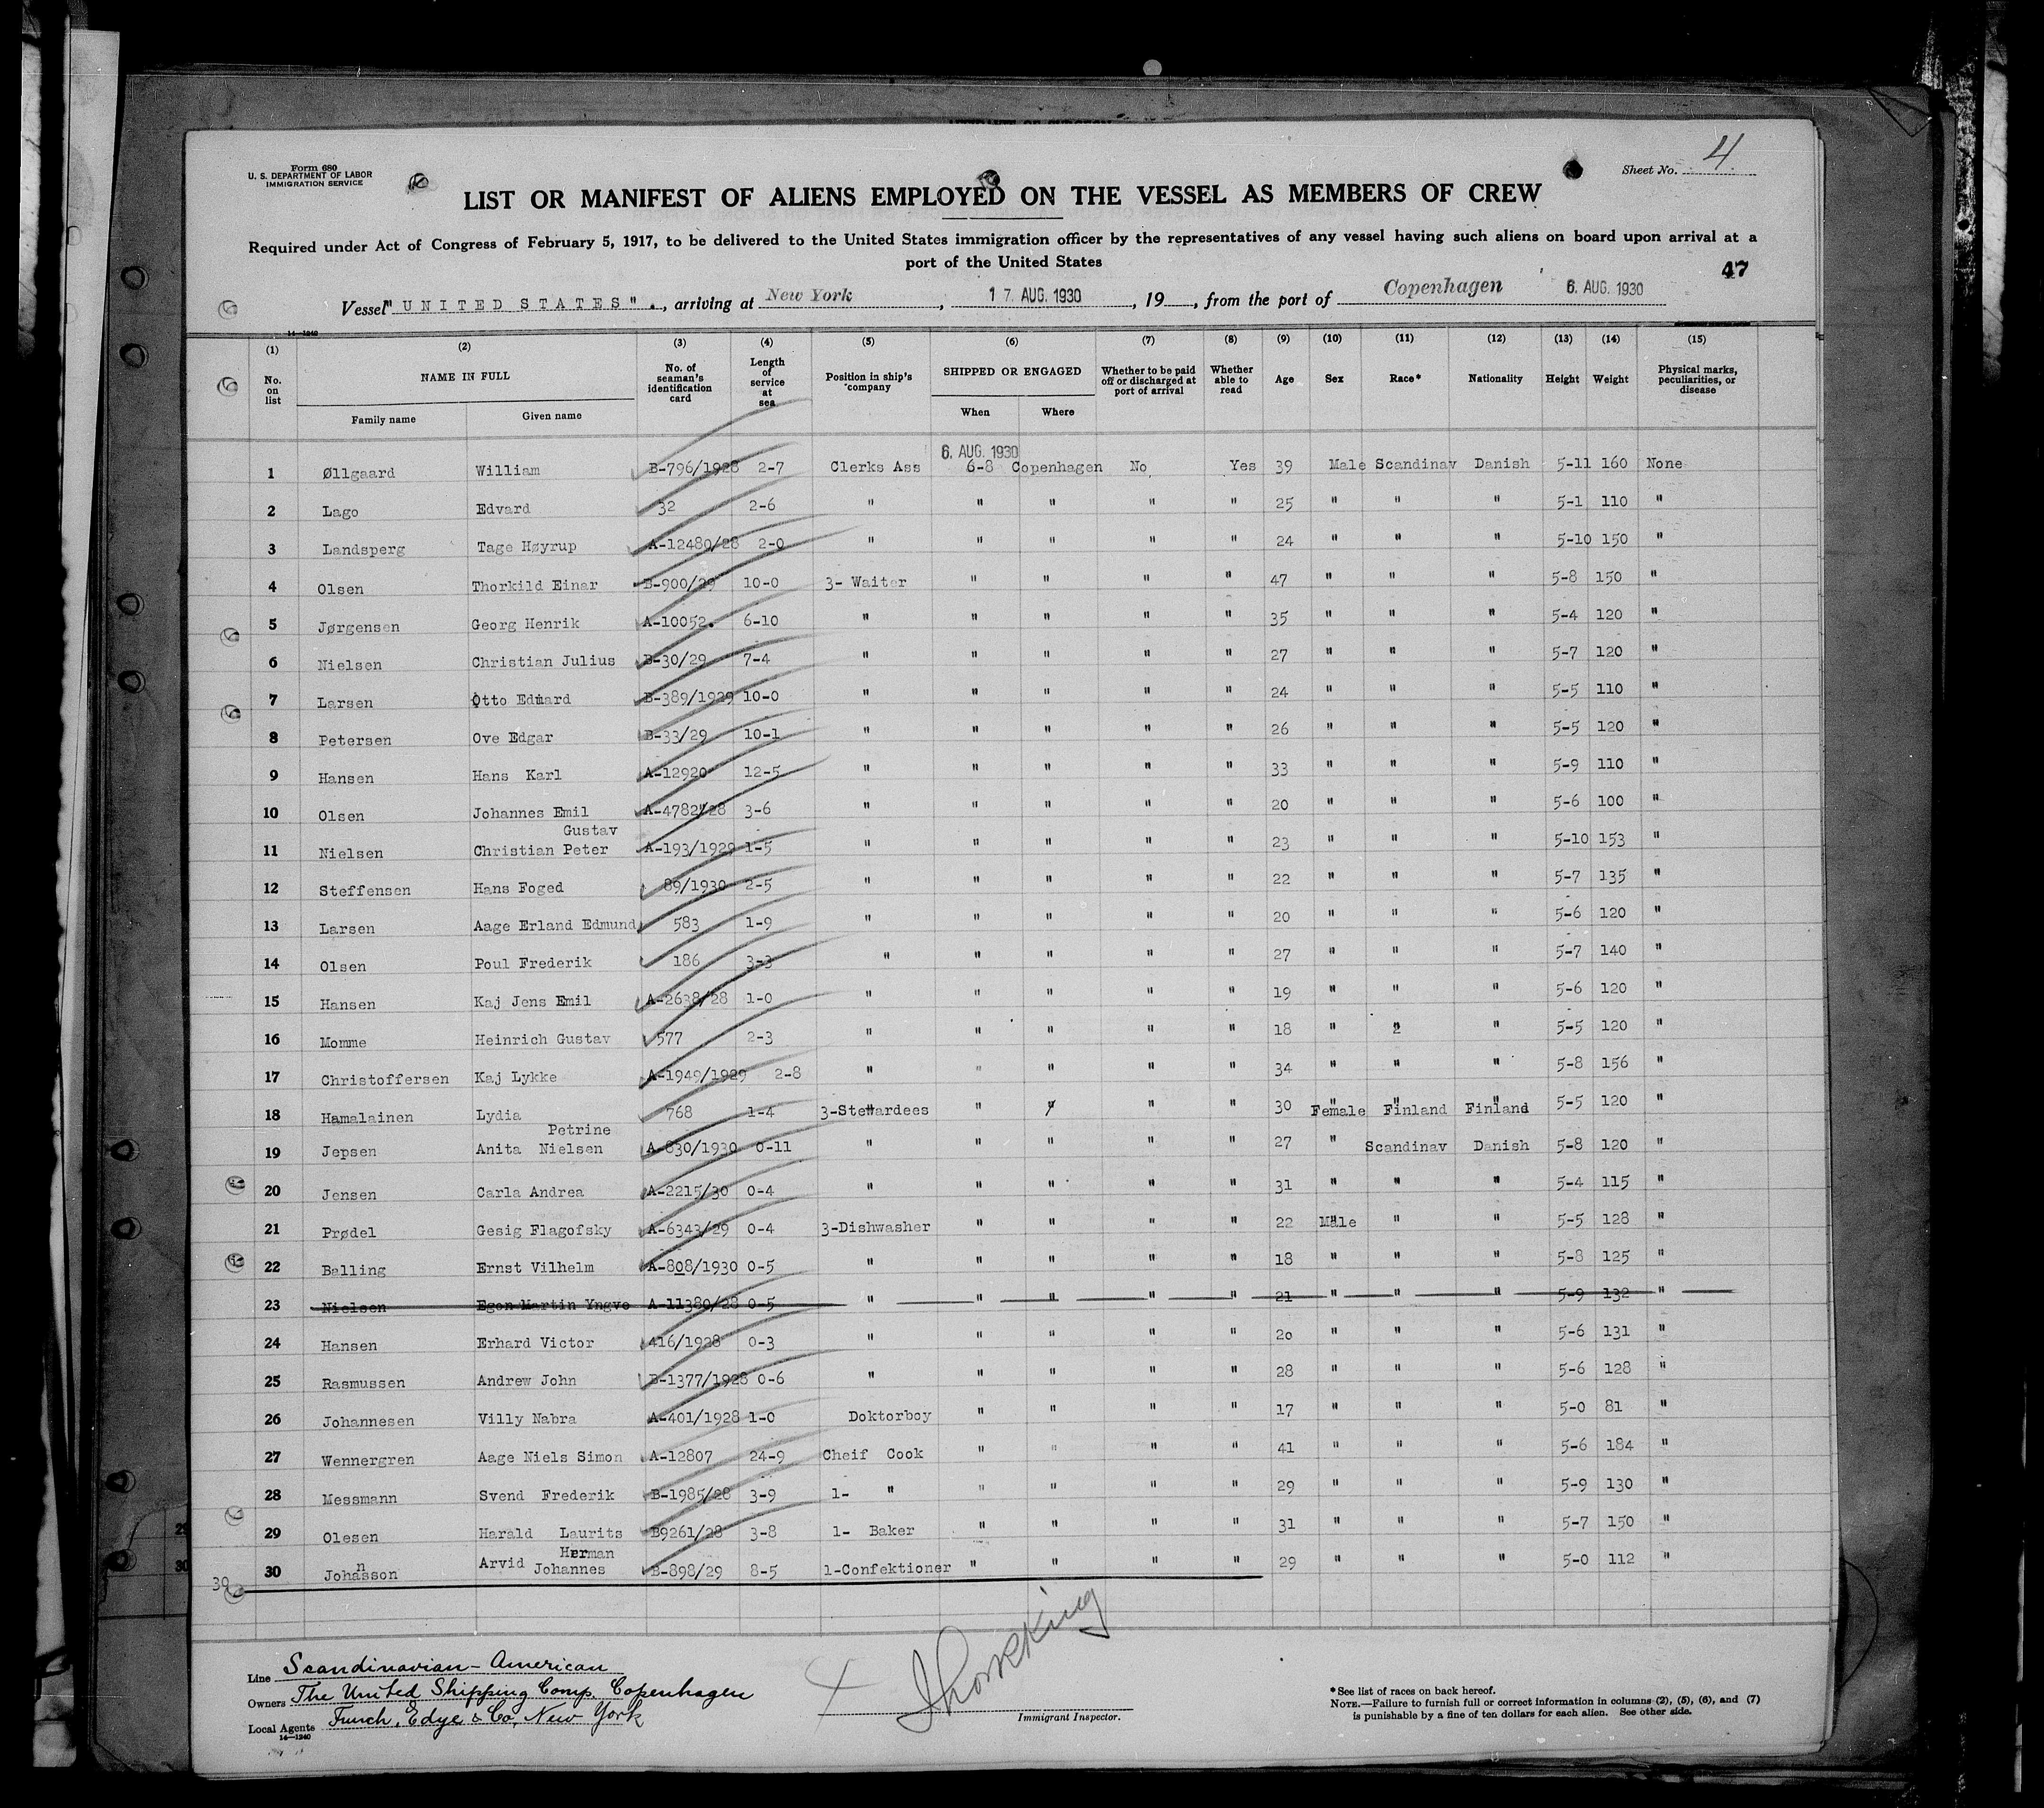 Form 680
U. S. DEPARTMENT OF LABOR
IMMIGRATION SERVICE
Sheet No. 4
LIST OR MANIFEST OF ALIENS EMPLOYED ON THE VESSEL AS MEMBERS OF CREW
Required under Act of Congress of February 5, 1917, to be delivered to the United States immigration officer by the representatives of any vessel having such aliens on board upon arrival at a
port of the United States
47
Vessel "UNITED STATES", arriving at New York, 17 AUG. 1930, 19, from the port of Copenhagen 6. AUG. 1930
14—1240
(1) (2) (3) (4) (5) (6) (7) (8) (9) (10) (11) (12) (13) (14) (15)
No. on list NAME IN FULL Family name Given name No. of seaman's identification card Length of service at sea Position in ship's company SHIPPED OR ENGAGED When Where Whether to be paid off or discharged at port of arrival Whether able to read Age Sex Race* Nationality Height Weight Physical marks, peculiarities, or disease
6. AUG. 1930
1 Øllgaard William B-796/1928 2-7 Clerks Ass 6-8 Copenhagen No Yes 39 Male Scandinav Danish 5-11 160 None
2 Lago Edvard 32 2-6 " " " " " 25 " " " 5-1 110 "
3 Landsperg Tage Høyrup A-12480/28 2-0 " " " " " 24 " " " 5-10 150 "
4 Olsen Thorkild Einar B-900/29 10-0 3- Waiter " " " " 47 " " " 5-8 150 "
5 Jørgensen Georg Henrik A-10052. 6-10 " " " " " 35 " " " 5-4 120 "
6 Nielsen Christian Julius B-30/29 7-4 " " " " " 27 " " " 5-7 120 "
7 Larsen Otto B-389/1929 10-0 " " " " " 24 " " " 5-5 110 "
8 Petersen Ove Edgar B-33/29 10-1 " " " " " 26 " " " 5-5 120 "
9 Hansen Hans Karl A-12920 12-5 " " " " " 33 " " " 5-9 110 "
10 Olsen Johannes Emil A-4782/28 3-6 " " " " " 20 " " " 5-6 100 "
Gustav
11 Nielsen Christian Peter A-193/1929 1-5 " " " " " 23 " " " 5-10 153 "
12 Steffensen Hans Foged 89/1930 2-5 " " " " " 22 " " " 5-7 135 "
13 Larsen Aage Erland Edmund 583 1-9 " " " " " 20 " " " 5-6 120 "
14 Olsen Poul Frederik 186 3-3 " " " " " 27 " " " 5-7 140 "
15 Hansen Kaj Jens Emil A-2638/28 1-0 " " " " " 19 " " " 5-6 120 "
16 Momme Heinrich Gustav 577 2-3 " " " " " 18 " 2 " 5-5 120 "
17 Christoffersen Kaj Lykke A-1949/1929 2-8 " " " " " 34 " " " 5-8 156 "
18 Hamalainen Lydia 768 1-4 3-Stewardees " " " " 30 Female Finland Finland 5-5 120 "
Petrine
19 Jepsen Anita Nielsen A-830/1930 0-11 " " " " " 27 " Scandinav Danish 5-8 120 "
20 Jensen Carla Andrea A-2215/30 0-4 " " " " " 31 " " " 5-4 115 "
21 Prødel Gesig Flagofsky A-6343/29 0-4 3-Dishwasher " " " " 22 Male " " 5-5 128 "
22 Balling Ernst Vilhelm A-808/1930 0-5 " " " " " 18 " " " 5-8 125 "
23 Nielsen Egon Martin Yngve A-11380/28 0-5 " " " " " 21 " " " 5-9 132 "
24 Hansen Erhard Victor 416/1928 0-3 " " " " " 20 " " " 5-6 131 "
25 Rasmussen Andrew John B-1377/1928 0-6 " " " " " 28 " " " 5-6 128 "
26 Johannesen Villy Nabra A-401/1928 1-0 Doktorboy " " " " 17 " " " 5-0 81 "
27 Wennergren Aage Niels Simon A-12807 24-9 Cheif Cook " " " " 41 " " " 5-6 184 "
28 Messmann Svend Frederik B-1985/28 3-9 1- " " " " " 29 " " " 5-9 130 "
29 Olesen Harald Laurits B9261/28 3-8 1- Baker " " " " 31 " " " 5-7 150 "
Herman
30 Johansson Arvid Johannes B-898/29 8-5 1-Confektioner " " " " 29 " " " 5-0 112 "
30
Line Scandinavian-American
Owners The United Shipping Comp. Copenhagen
Local Agents Funch, Edye & Co, New York
14—1240
Immigrant Inspector.
*See list of races on back hereof.
NOTE.—Failure to furnish full or correct information in columns (2), (5), (6), and (7)
is punishable by a fine of ten dollars for each alien. See other side.
29
30